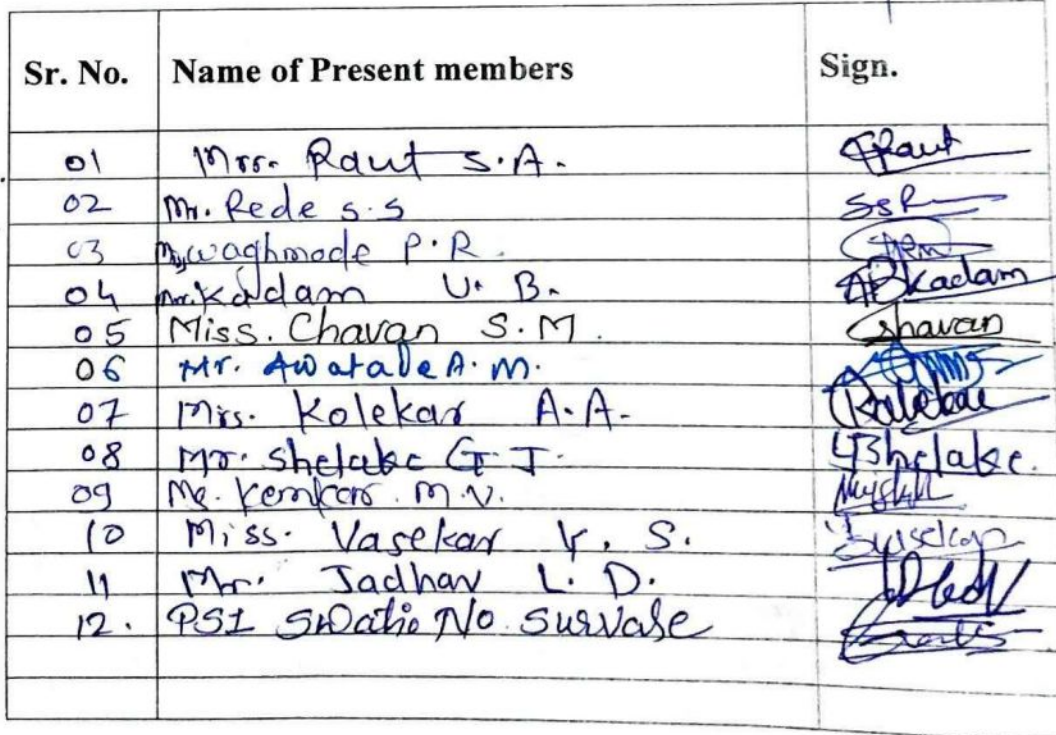 Sr. No. Name of Present members Sign.
01 Mrs. Raut S.A. Raut
02 Mr. Rede S.S SSR
03 Waghmode P.R.
04 Mr. Kadam U.B. ABKadam
05 Miss. Chavan S.M. Chavan
06 Mr. Awatade A.M.
07 Mrs. Kolekar A.A. Kolekar
08 Mr. Shelake G.J. Shelake.
09 Kemkar. M.V.
10 Miss. Vasekar Y.S. Vasekar
11 Mr. Jadhav L.D.
12. PSI Swati No Survase